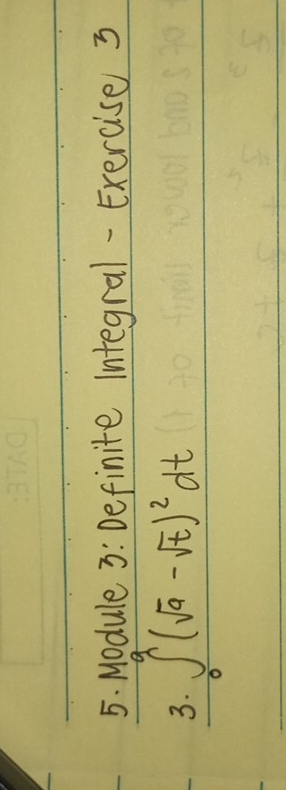 5. Module 3: Definite Integral - Exercise 3
3. ∫₀ᵃ (√a - √t)² dt
DATE: